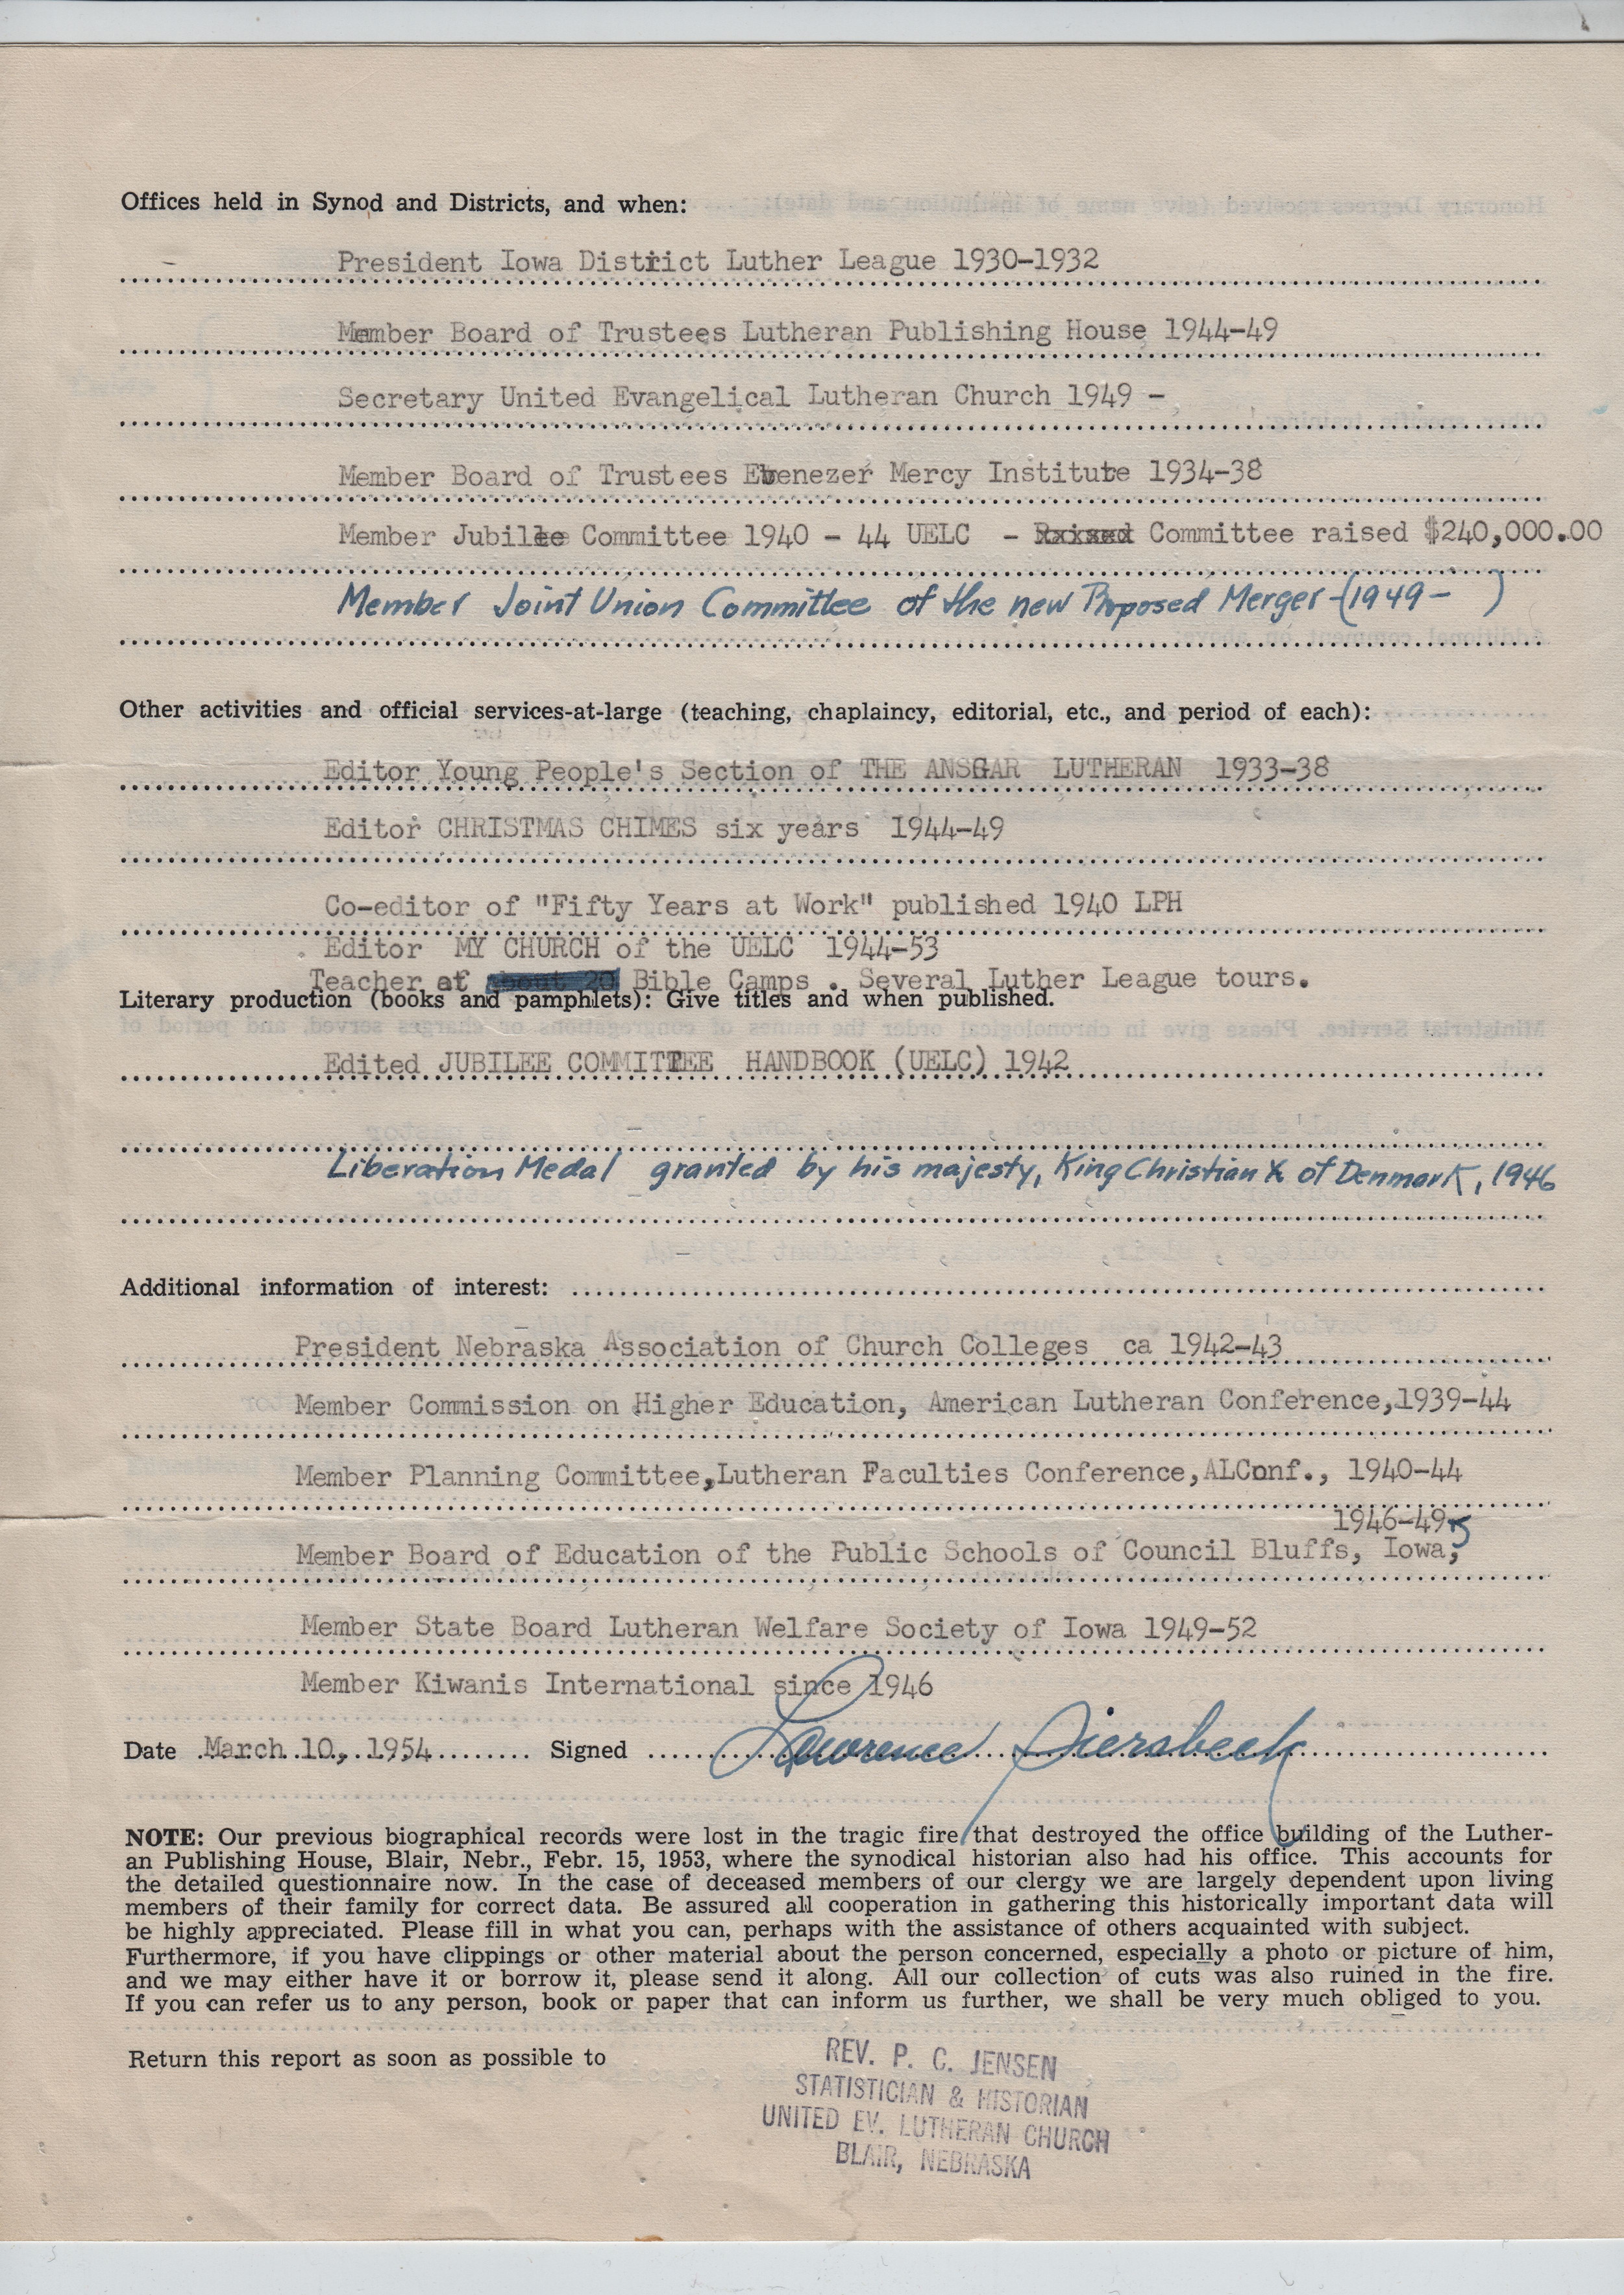 Offices held in Synod and Districts, and when:
President Iowa District Luther League 1930-1932
Member Board of Trustees Lutheran Publishing House 1944-49
Secretary United Evangelical Lutheran Church 1949 -
Member Board of Trustees Ebenezer Mercy Institute 1934-38
Member Jubilee Committee 1940 - 44 UELC - Raised Committee raised $240,000.00
Member Joint Union Committee of the new Proposed Merger - (1949 - )
Other activities and official services-at-large (teaching, chaplaincy, editorial, etc., and period of each):
Editor Young People's Section of THE ANSGAR LUTHERAN 1933-38
Editor CHRISTMAS CHIMES six years 1944-49
Co-editor of "Fifty Years at Work" published 1940 LPH
Editor MY CHURCH of the UELC 1944-53
Teacher at about 20 Bible Camps . Several Luther League tours.
Literary production (books and pamphlets): Give titles and when published.
Edited JUBILEE COMMITTEE HANDBOOK (UELC) 1942
Liberation Medal granted by his majesty, King Christian X of Denmark, 1946
Additional information of interest:
President Nebraska Association of Church Colleges ca 1942-43
Member Commission on Higher Education, American Lutheran Conference,1939-44
Member Planning Committee,Lutheran Faculties Conference,ALConf., 1940-44
1946-49
Member Board of Education of the Public Schools of Council Bluffs, Iowa,
Member State Board Lutheran Welfare Society of Iowa 1949-52
Member Kiwanis International since 1946
Date March 10, 1954 Signed Lawrence Siersbeck
NOTE: Our previous biographical records were lost in the tragic fire that destroyed the office building of the Luther-
an Publishing House, Blair, Nebr., Febr. 15, 1953, where the synodical historian also had his office. This accounts for
the detailed questionnaire now. In the case of deceased members of our clergy we are largely dependent upon living
members of their family for correct data. Be assured all cooperation in gathering this historically important data will
be highly appreciated. Please fill in what you can, perhaps with the assistance of others acquainted with subject.
Furthermore, if you have clippings or other material about the person concerned, especially a photo or picture of him,
and we may either have it or borrow it, please send it along. All our collection of cuts was also ruined in the fire.
If you can refer us to any person, book or paper that can inform us further, we shall be very much obliged to you.
Return this report as soon as possible to
REV. P. C. JENSEN
STATISTICIAN & HISTORIAN
UNITED EV. LUTHERAN CHURCH
BLAIR, NEBRASKA